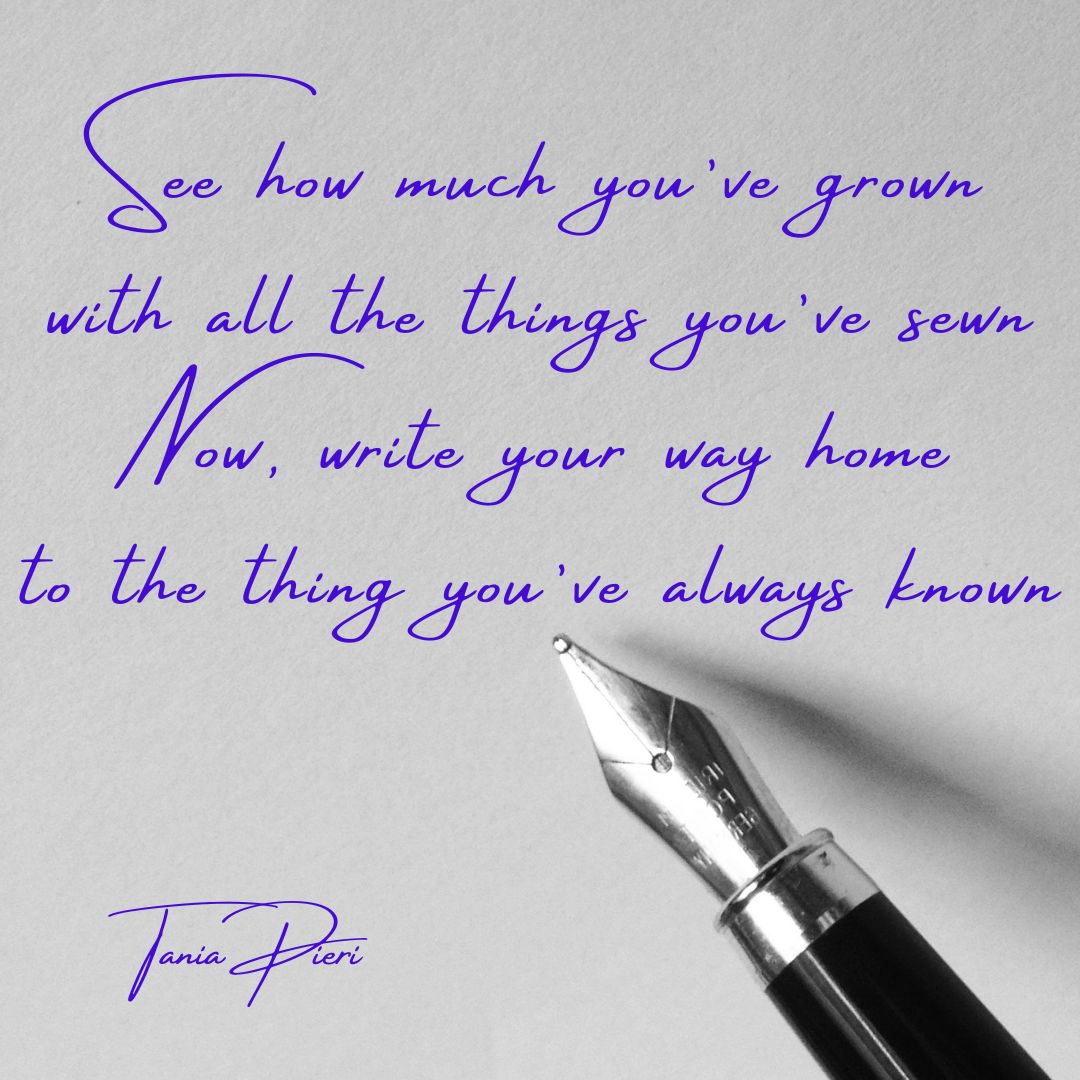 See how much you've grown
with all the things you've sewn
Now, write your way home
to the thing you've always known
Tania Pieri